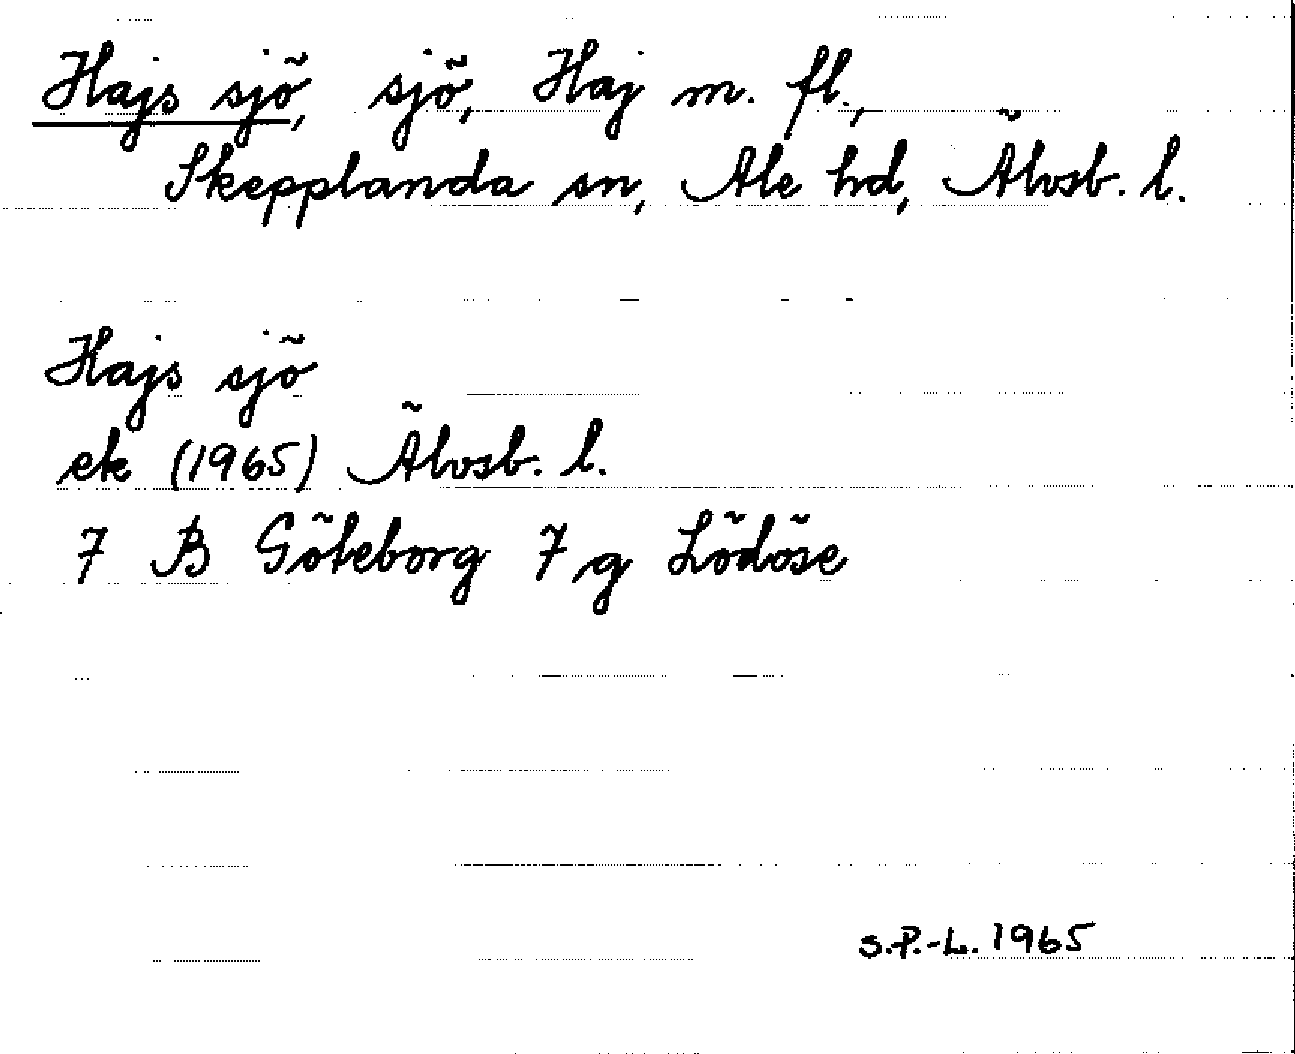 Hajs sjö, sjö, Haj m. fl.,
Skepplanda sn, Ale hd, Älvsb. l.
Hajs sjö
ek (1965) Älvsb. l.
7 B Göteborg 7 g Lödöse
S.P.-L. 1965